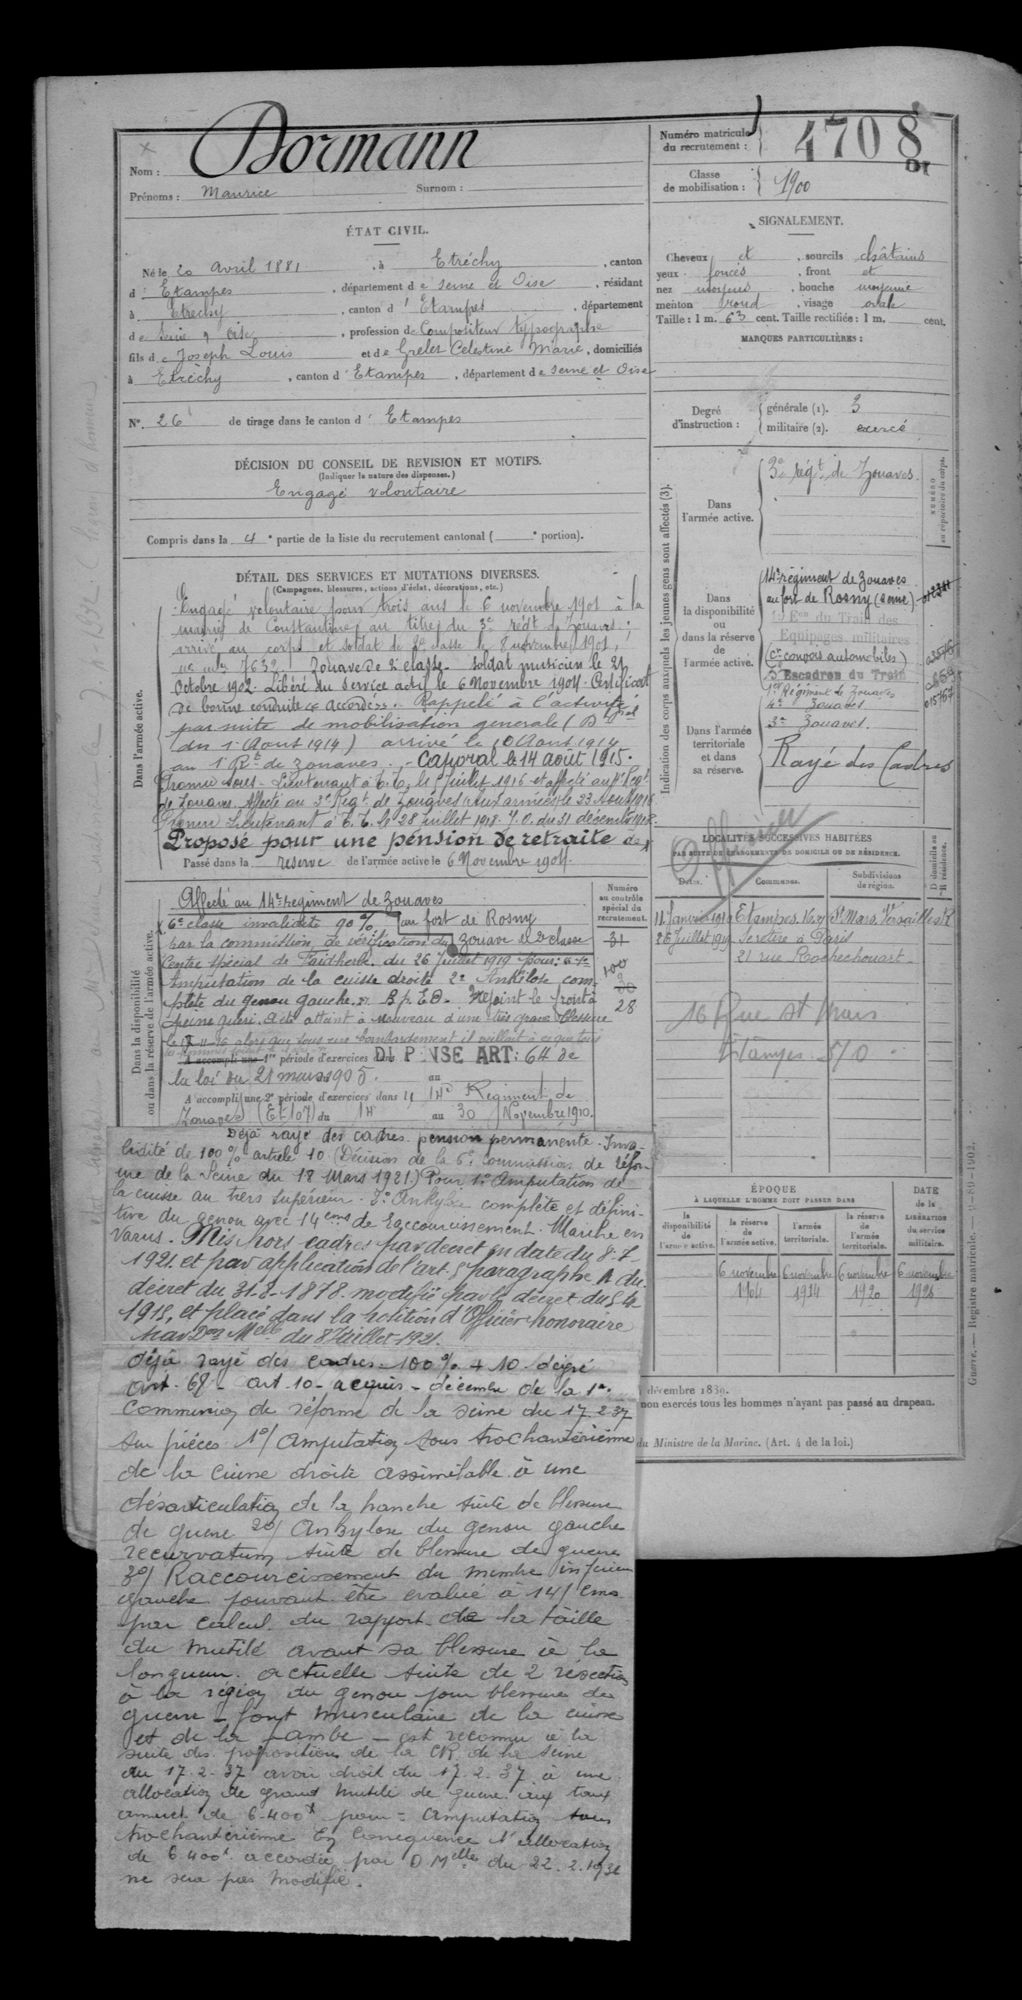 Nom : Dormann
Prénoms : Maurice Surnom :
ÉTAT CIVIL.
Né le 20 Avril 1881, à Etréchy, canton
d' Etampes, département de Seine et Oise, résidant
à Etrechy, canton d' Etampes, département
de Seine & Oise, profession de Compositeur typographe
fils de Joseph Louis et de Grelet Célestine Marie, domiciliés
à Etréchy, canton d' Etampes, département de Seine et Oise
N°. 26 de tirage dans le canton d' Etampes
DÉCISION DU CONSEIL DE REVISION ET MOTIFS.
(Indiquer la nature des dispenses.)
Engagé volontaire
Compris dans la 4e partie de la liste du recrutement cantonal ( e portion).
DÉTAIL DES SERVICES ET MUTATIONS DIVERSES.
(Campagnes, blessures, actions d'éclat, décorations, etc.)
Dans l'armée active.
Engagé volontaire pour trois ans le 6 novembre 1901 à la
mairie de Constantine au titre du 3e régt de Zouaves ;
arrivé au corps et soldat de 2e classe le 8 novembre 1901,
no mle 7632. Zouave de 2e classe. Soldat musicien le 21
Octobre 1902. Libéré du service actif le 6 Novembre 1904. Certificat
de bonne conduite accordé. Rappelé à l'activité
par suite de mobilisation generale (D
du 1er Aout 1914) arrivé le 10 Aout 1914
au 1er Rt de zouaves. - Caporal le 14 août 1915.
Promu sous-Lieutenant à T.T. le Juillet 1916 et affecté au Régt
de Zouaves. Affecté au 3e Régt de Zouaves (aux armées) le 23 Aout 1916.
Promu Lieutenant à T.T. le 28 juillet 1918. J.O. du 31 décembre 1918.
Proposé pour une pension de retraite de x
Passé dans la reserve de l'armée active le 6 Novembre 1904.
Dans la disponibilité
ou dans la réserve de l'armée active.
Affecté au 14e regiment de Zouaves
x 6e classe invalidité 90 % au fort de Rosny
par la commission de vérification du Zouave de 2e classe
Centre spécial de Faidherbe du 26 Juillet 1919 pour : 1°
Amputation de la cuisse droite 2° Ankilose com-
plète du genou gauche. Rejoint le front à
peine guéri. A été atteint à nouveau d'une très grave blessure
le 11-16 alors que sous un bombardement il veillait à ce que tous
A accompli une 1re période d'exercices dans DISPENSE ART : 64 de
la loi du 21 mars 1905. au
A accompli une 2e période d'exercices dans le 14e Regiment de
Zouaves (Et 107) du 14 au 30 Novembre 1910.
Numéro
au contrôle
spécial du
recrutement.
31
100
30
28
Déjà rayé des cadres. pension permanente - Inva-
lidité de 100 % article 10 (Décision de la 6e Commission de réfor-
me de la Seine du 18 Mars 1921.) Pour 1° Amputation de
la cuisse au tiers supérieur - 2° Ankylose complète et défini-
tive du genou avec 14 cms de Raccourcissement. Marche en
varus. Mis hors cadres par decret en date du 8-7-
1921. et par application de l'art. 8 paragraphe A du
décret du 31-8-1878 modifié par le décret du 5-4
1915, et placé dans la position d'Officier honoraire
par Don Melle du 8 Juillet 1921.
déjà rayé des cadres - 100 % + 10 degré
art. 68 - art. 10 - acquis - décembre de la 1re
Commission de réforme de la Seine du 17.2.37
sur pièces 1°/ amputation sous trochantérienne
de la cuisse droite assimilable à une
désarticulation de la hanche suite de blessure
de guerre 2°/ Ankylose du genou gauche
recurvatum suite de blessure de guerre
3°/ Raccourcissement du membre inférieur
gauche pouvant être évalué à 14 cms
par calcul du rapport de la taille
du mutilé avant sa blessure à la
longueur actuelle suite de 2 résections
à la région du genou pour blessure de
guerre - font musculaire de la cuisse
et de la jambe - est reconnu à la
suite des propositions de la CR de la Seine
du 17.2.37 avoir droit du 17.2.37 à une
allocation de grand mutilé de guerre aux taux
annuel de 6.400f pour : amputation sous
trochantérienne En conséquence l'allocation
de 6.400f accordée par D Melle du 22.2.1936
ne sera pas modifiée.
Numéro matricule
du recrutement : 4708
Classe
de mobilisation : 1900
SIGNALEMENT.
Cheveux et, sourcils châtains
yeux foncés, front et
nez moyens, bouche moyenne
menton rond, visage ovale
Taille : 1 m. 63 cent. Taille rectifiée : 1 m. cent.
MARQUES PARTICULIÈRES :
Degré
d'instruction :
générale (1). 3
militaire (2). exercé
Indication des corps auxquels les jeunes gens sont affectés (3).
NUMÉRO
au répertoire du corps.
Dans
l'armée active.
3e régt de Zouaves.
Dans
la disponibilité
ou
dans la réserve
de
l'armée active.
14e régiment de Zouaves
au fort de Rosny (Seine)
Eon du Train des
Equipages militaires
(Cn convois automobiles)
5e Escadron du Train
1er Régiment de Zouaves
4e Zouaves
3e Zouaves.
Dans l'armée
territoriale
et dans
sa réserve.
Rayé des Cadres
Officier
LOCALITÉS SUCCESSIVES HABITÉES
PAR SUITE DE CHANGEMENTS DE DOMICILE OU DE RÉSIDENCE.
Dates. Communes. Subdivisions
de région. D domicile ou
R résidence.
11 Janvier 1910 Etampes, St Mars Versailles R
26 Juillet 1919 Se retire à Paris
21 rue Rochechouart
16 Rue St Mars
Etampes S/O
ÉPOQUE
À LAQUELLE L'HOMME DOIT PASSER DANS
DATE
de la
LIBÉRATION
du service
militaire.
la
disponibilité
de
l'armée active.
la réserve
de
l'armée active.
l'armée
territoriale.
la réserve
de
l'armée
territoriale.
6 novembre
1904
6 novembre
1914
6 novembre
1920
6 novembre
1926
décembre 1889.
non exercés tous les hommes n'ayant pas passé au drapeau.
du Ministre de la Marine. (Art. 4 de la loi.)
Guerre. — Registre matricule. — 9-89-1902.